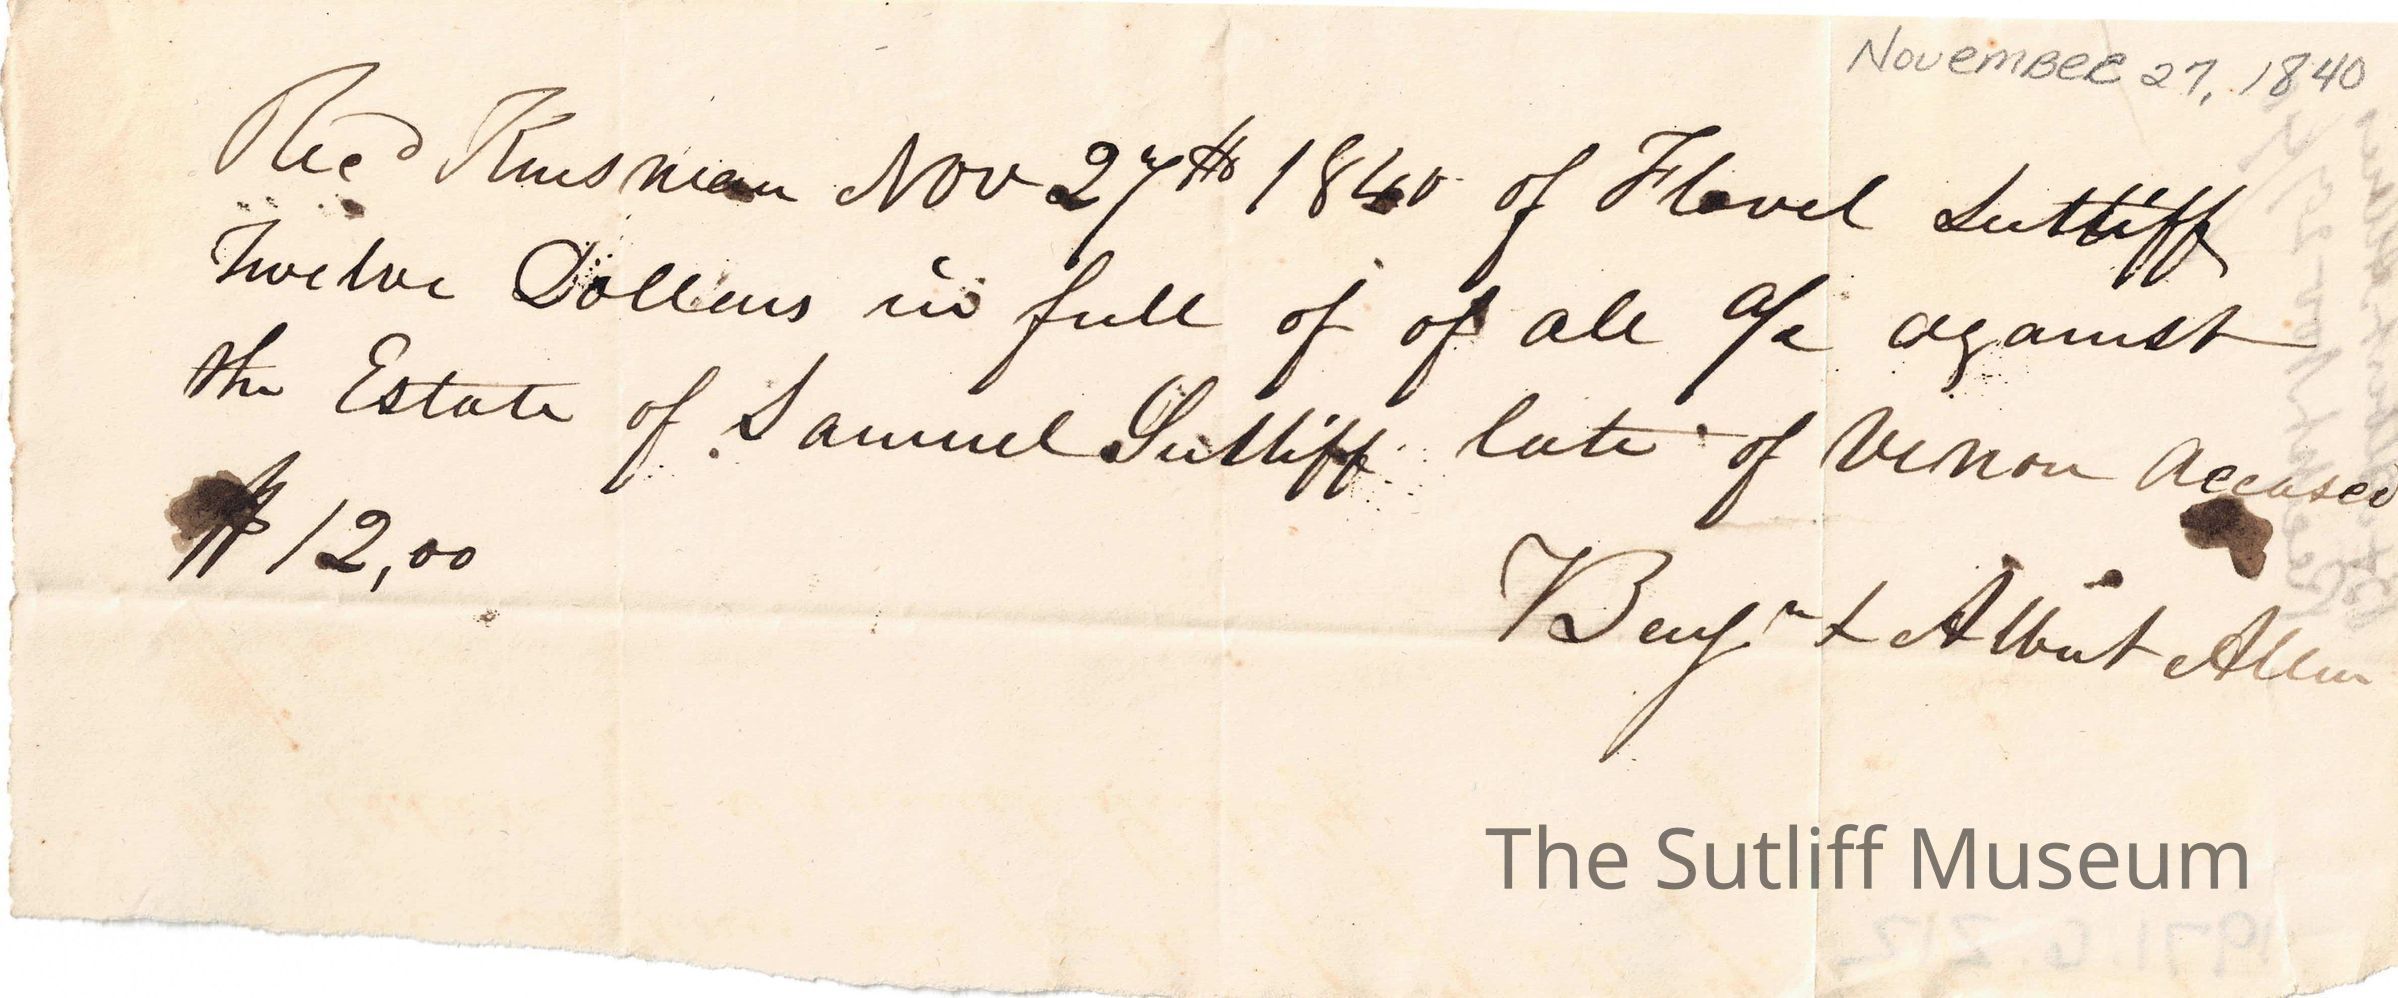 November 27, 1840
Recd Kinsman Nov 27th 1840 of Flavel Sutliff
Twelve Dollars in full of of all a/c against
the Estate of Samuel Sutliff late of Vernon deceased
$12,00
Benjn & Albert Allen
The Sutliff Museum
1971.5.212